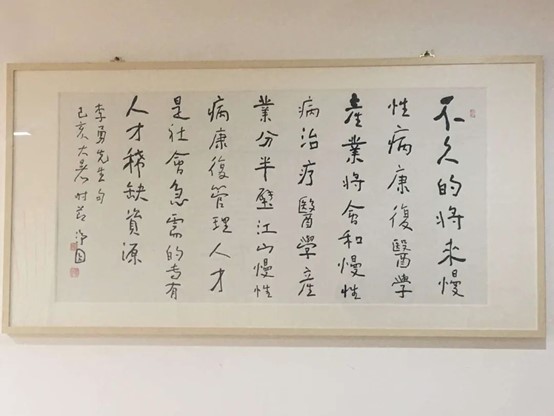 不久的将来慢
性病康復醫學
產業将會和慢性
病治疗醫學産
業分半壁江山慢性
病康復管理人才
是社會急需的专有
人才稀缺資源
李勇先生句
己亥大暑时节